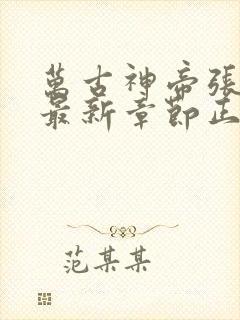 萬古神帝張
最新章節正
范某某